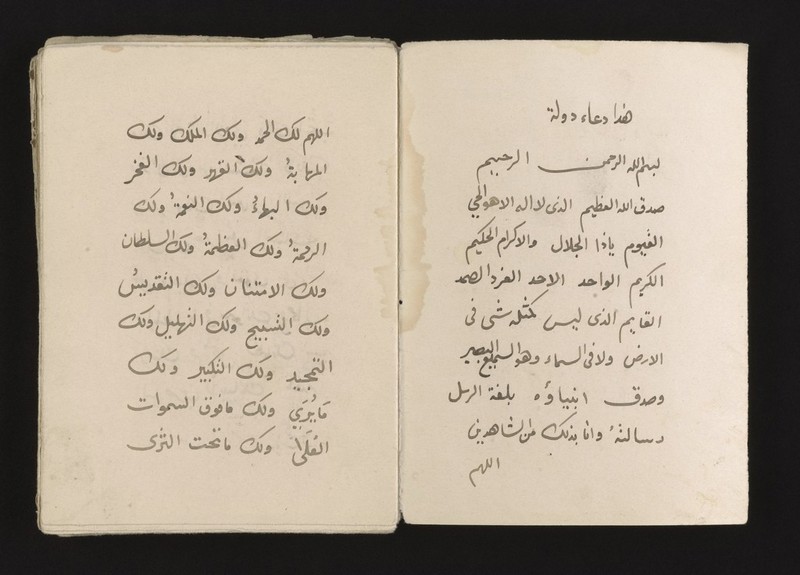 هذا دعاء دولة
بسم الله الرحمن الرحيم
صدق الله العظيم الذى لا اله الا هو الحي
القيوم ياذا الجلال والاكرام الحكيم
الكريم الواحد الاحد الفرد الصمد
القايم الذى ليس كمثله شى فى
الارض ولا فى السماء وهو السميع البصير
وصدق انبياؤه بلغة الرسل
رسالته وانا بذلك من الشاهدين
اللهم
اللهم لك الحمد ولك الملك ولك
المهابة ولك القهر ولك الفخر
ولك البهاء ولك النعمة ولك
الرحمة ولك العظمة ولك السلطان
ولك الامتنان ولك التقديس
ولك التسبيح ولك التهليل ولك
التمجيد ولك التكبير ولك
مَايُرَي ولك مافوق السموات
العُلَىٰ ولك ماتحت الثرى